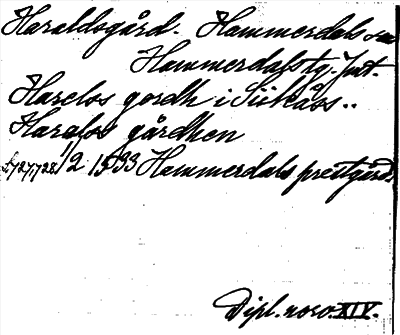 Haraldsgård. Hammerdals sn
Hammerdals tg. Jmt.
Harelos gordh i Siikåås..
Haralos gårdhen
s. 727, 728 1/2 1533 Hammerdals prestgård.
Dipl. norv. XIV.